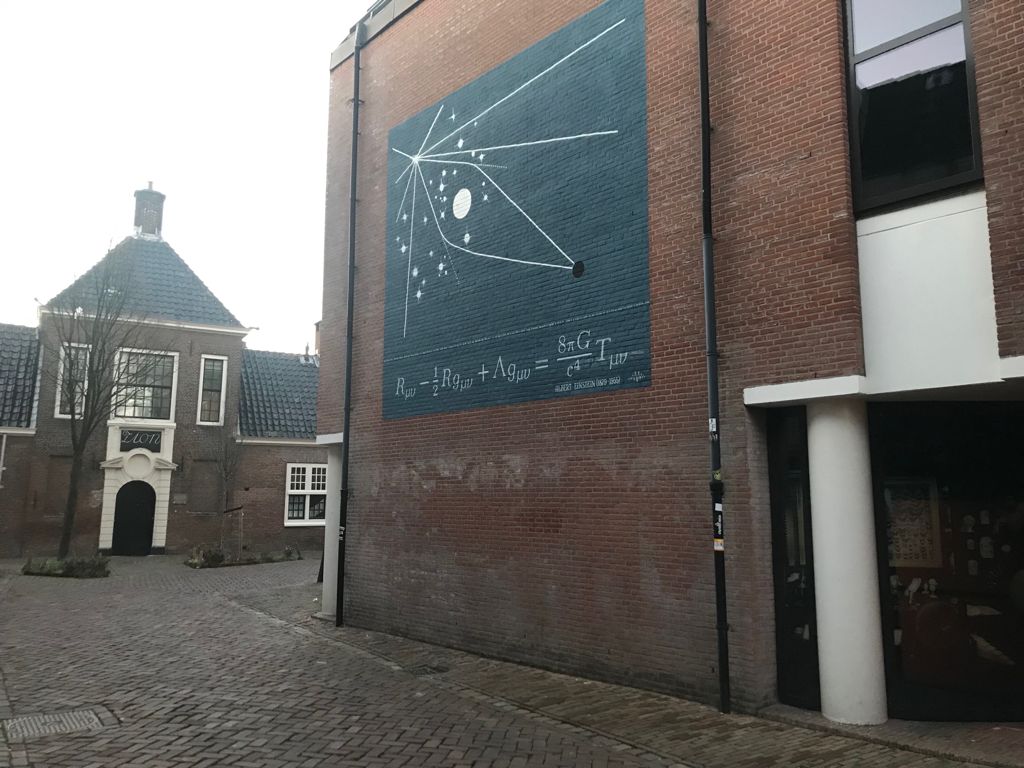 R_{μν} − \frac{1}{2} R g_{μν} + Λ g_{μν} = \frac{8πG}{c^4} T_{μν}
ALBERT EINSTEIN (1879-1955)
ZION